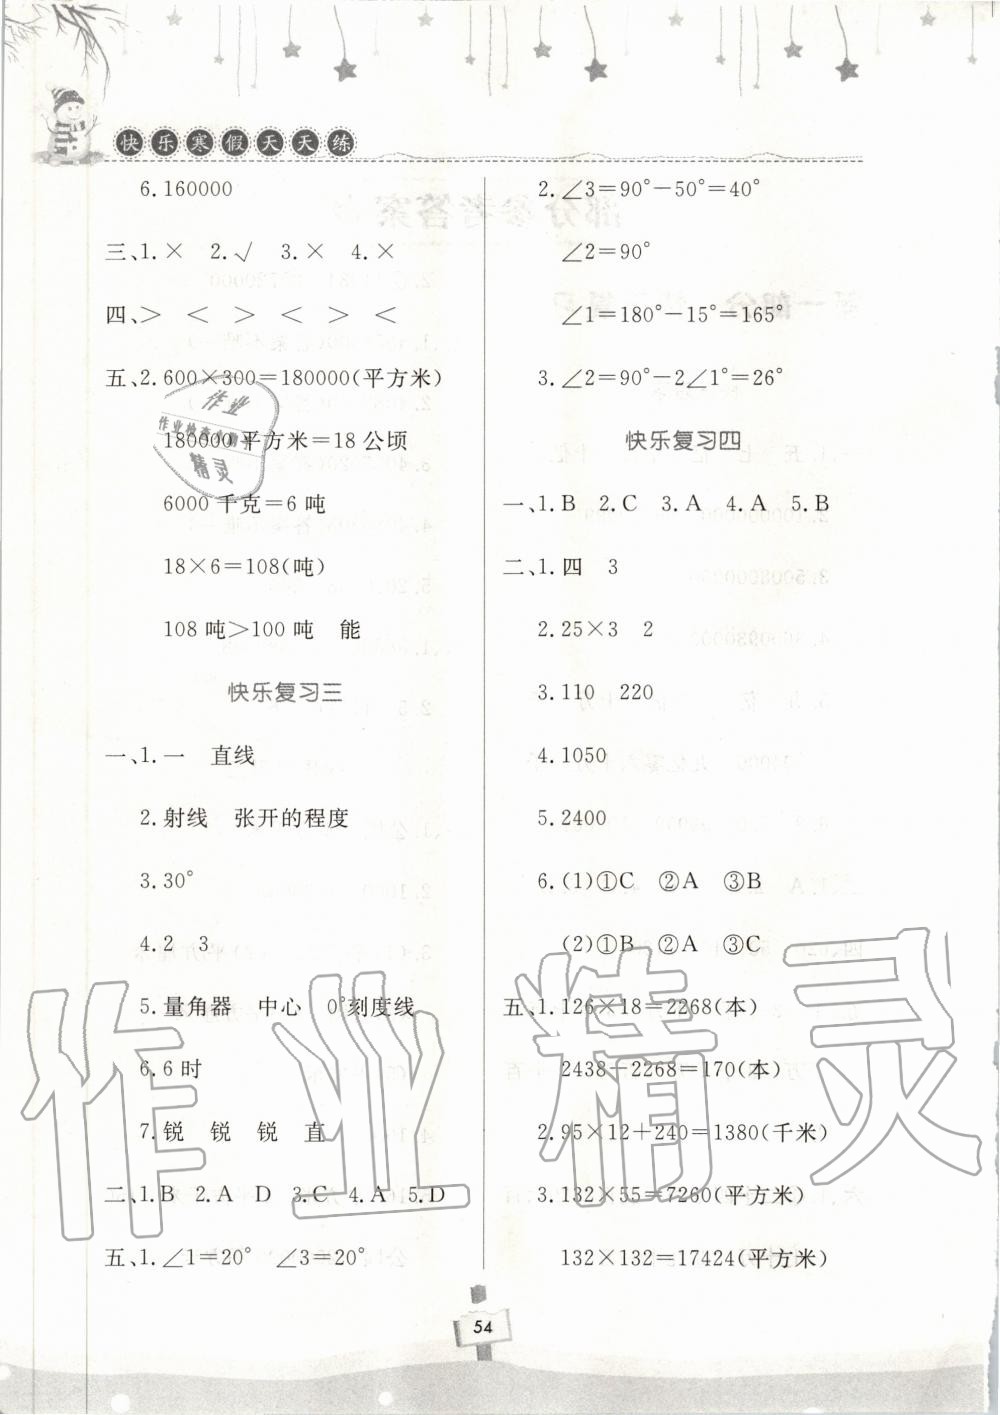 快乐寒假天天练
6.160000
三、1.× 2.√ 3.× 4.×
四、> < > < > <
五、2.600×300=180000(平方米)
180000平方米=18公顷
6000千克=6吨
18×6=108(吨)
108吨>100吨 能
快乐复习三
一、1.一 直线
2.射线 张开的程度
3.30°
4.2 3
5.量角器 中心 0°刻度线
6.6时
7.锐 锐 锐 直
二、1.B 2.A D 3.C 4.A 5.D
五、1.∠1=20° ∠3=20°
2.∠3=90°-50°=40°
∠2=90°
∠1=180°-15°=165°
3.∠2=90°-2∠1=26°
快乐复习四
一、1.B 2.C 3.A 4.A 5.B
二、1.四 3
2.25×3 2
3.110 220
4.1050
5.2400
6.(1)①C ②A ③B
(2)①B ②A ③C
五、1.126×18=2268(本)
2438-2268=170(本)
2.95×12+240=1380(千米)
3.132×55=7260(平方米)
132×132=17424(平方米)
54
作业
作业检查小帮手
精灵
作业精灵